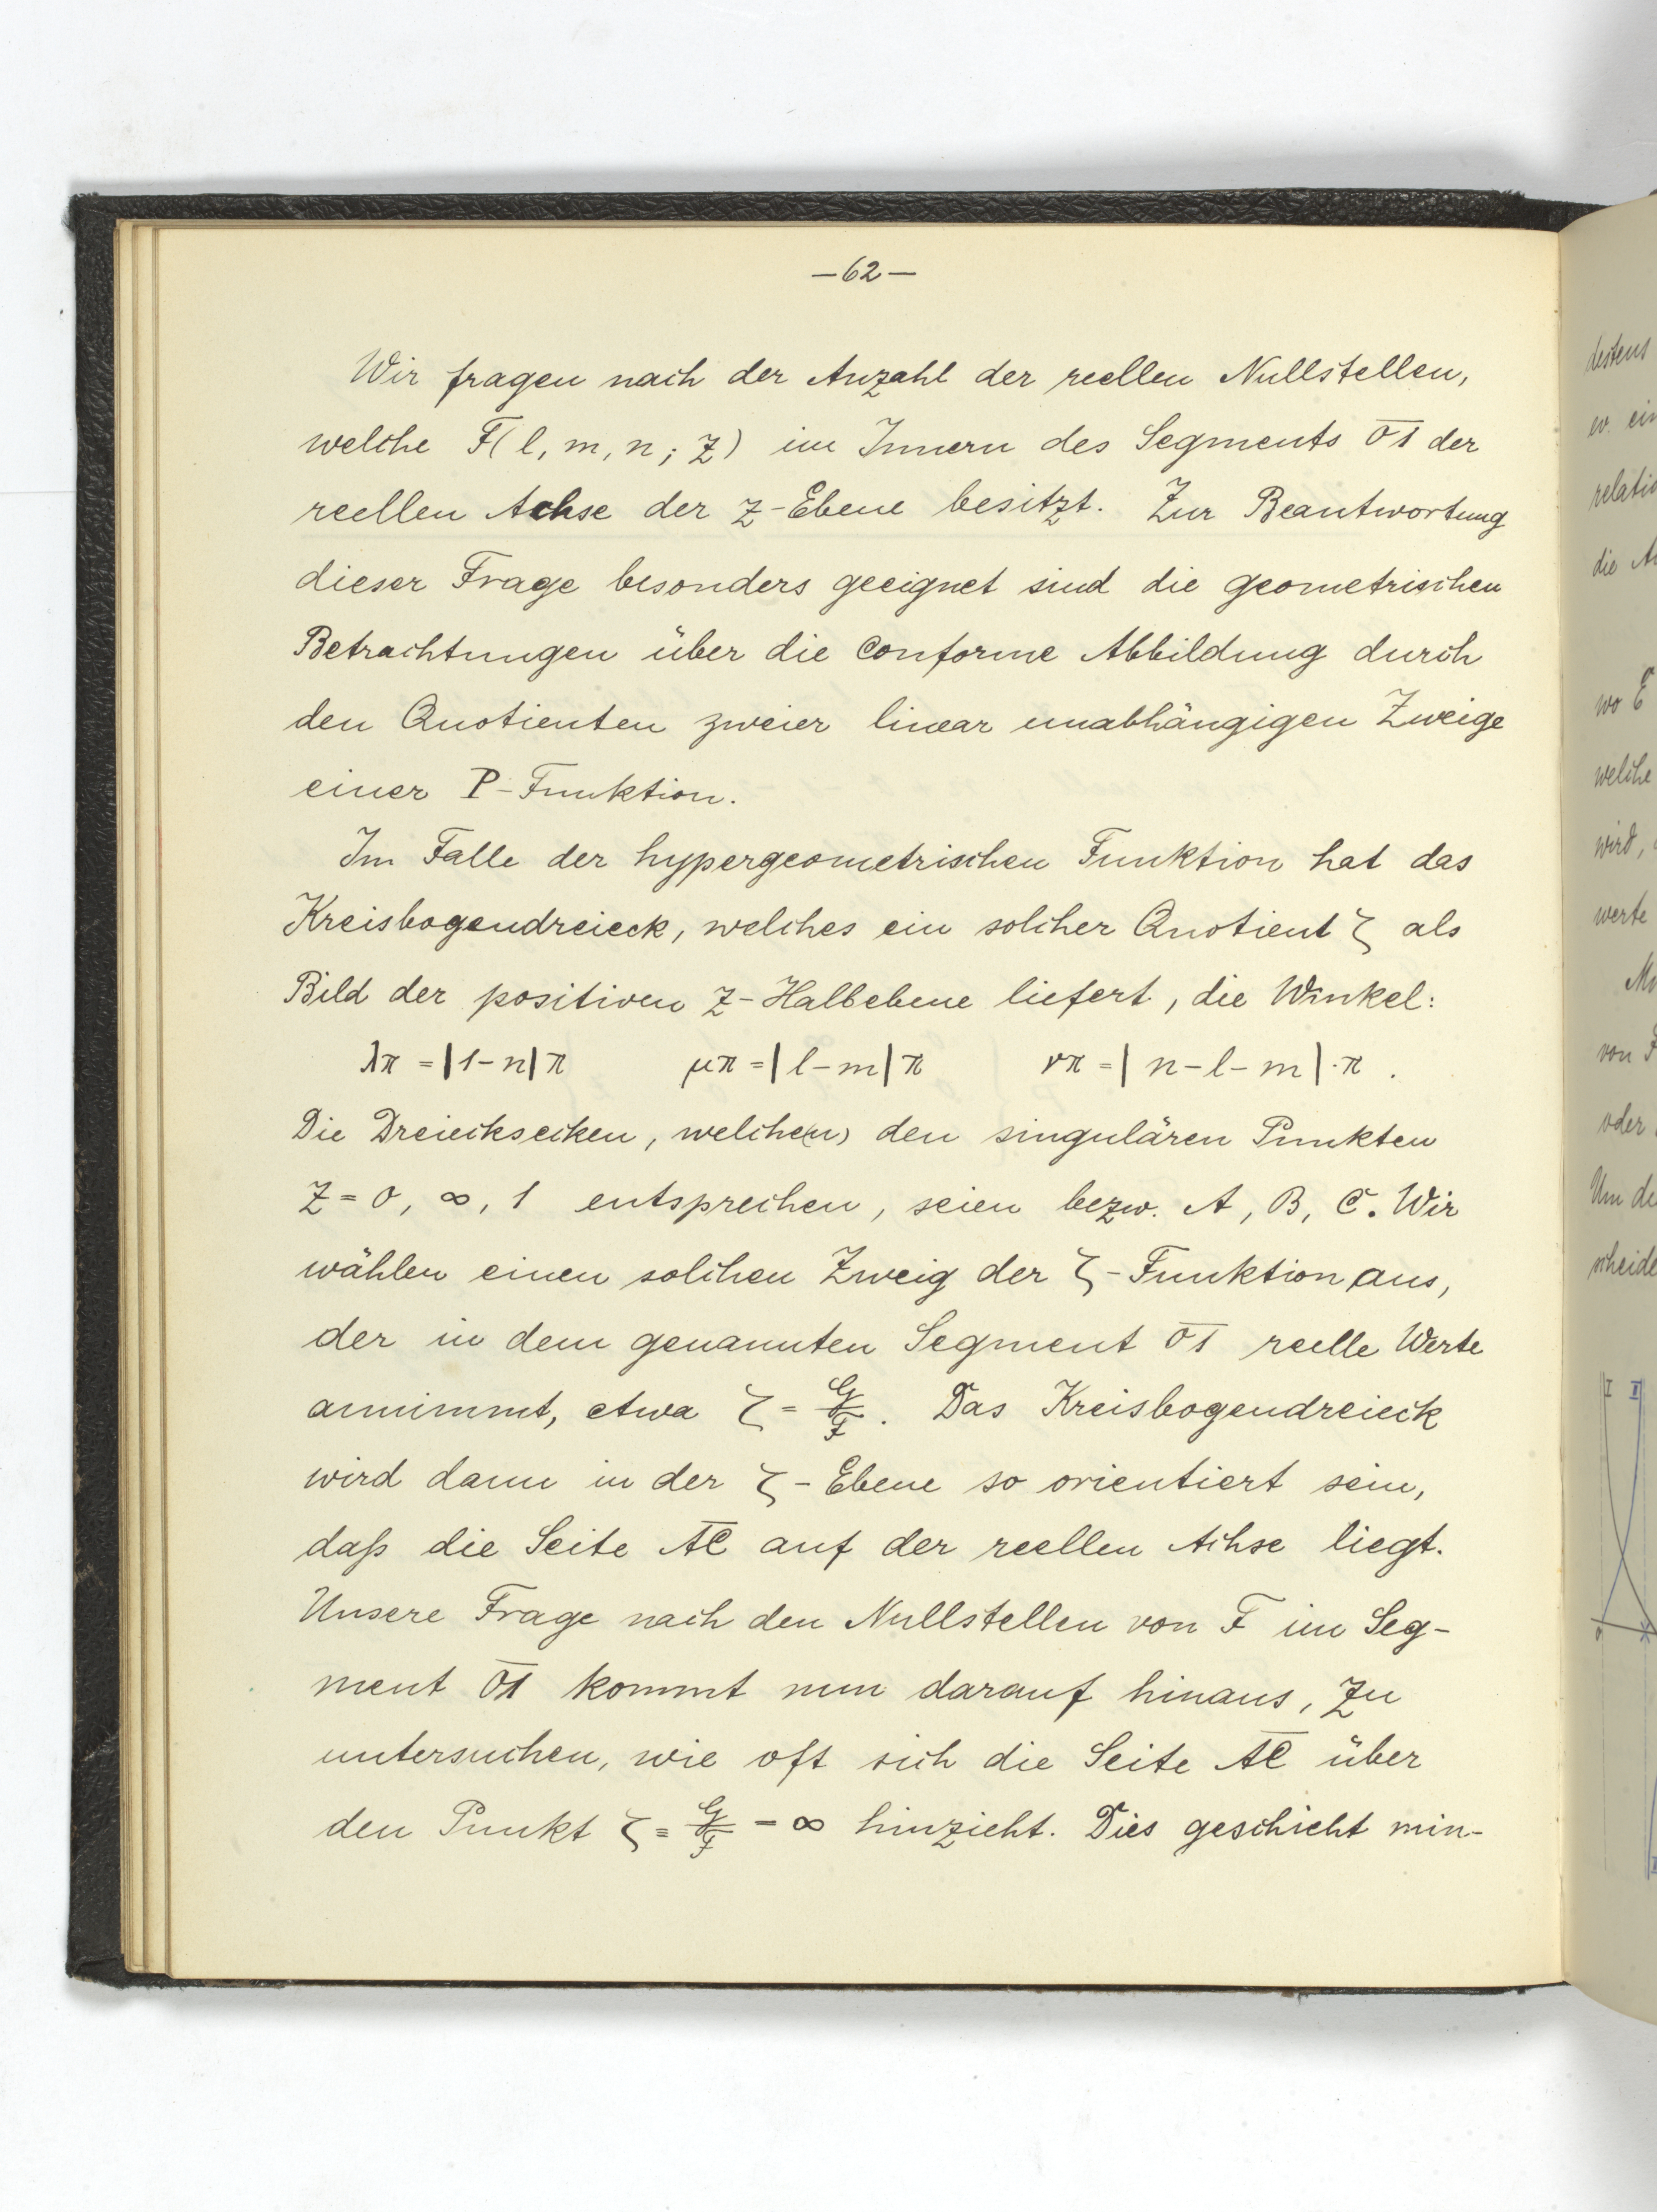 —62—
Wir fragen nach der Anzahl der reellen Nullstellen,
welche F(l, m, n; z) im Innern des Segments 0̅1̅ der
reellen Achse der z-Ebene besitzt. Zur Beantwortung
dieser Frage besonders geeignet sind die geometrischen
Betrachtungen über die conforme Abbildung durch
den Quotienten zweier linear unabhängigen Zweige
einer P-Funktion.
Im Falle der hypergeometrischen Funktion hat das
Kreisbogendreieck, welches ein solcher Quotient ζ als
Bild der positiven z-Halbebene liefert, die Winkel:
λπ = |1-n|π μπ = |l-m|π νπ = |n-l-m|·π .
Die Dreiecksecken, welche(n) den singulären Punkten
z = 0, ∞, 1 entsprechen, seien bezw. A, B, C. Wir
wählen einen solchen Zweig der ζ-Funktion aus,
der in dem genannten Segment 0̅1̅ reelle Werte
annimmt, etwa ζ = G/F. Das Kreisbogendreieck
wird dann in der ζ-Ebene so orientiert sein,
daß die Seite A̅C̅ auf der reellen Achse liegt.
Unsere Frage nach den Nullstellen von F im Seg-
ment 0̅1̅ kommt nun darauf hinaus, zu
untersuchen, wie oft sich die Seite A̅C̅ über
den Punkt ζ = G/F = ∞ hinzieht. Dies geschieht min-
destens
ein
relatio
die
wo E
welche
wird,
werte
von F
oder
Um de
scheide
I II